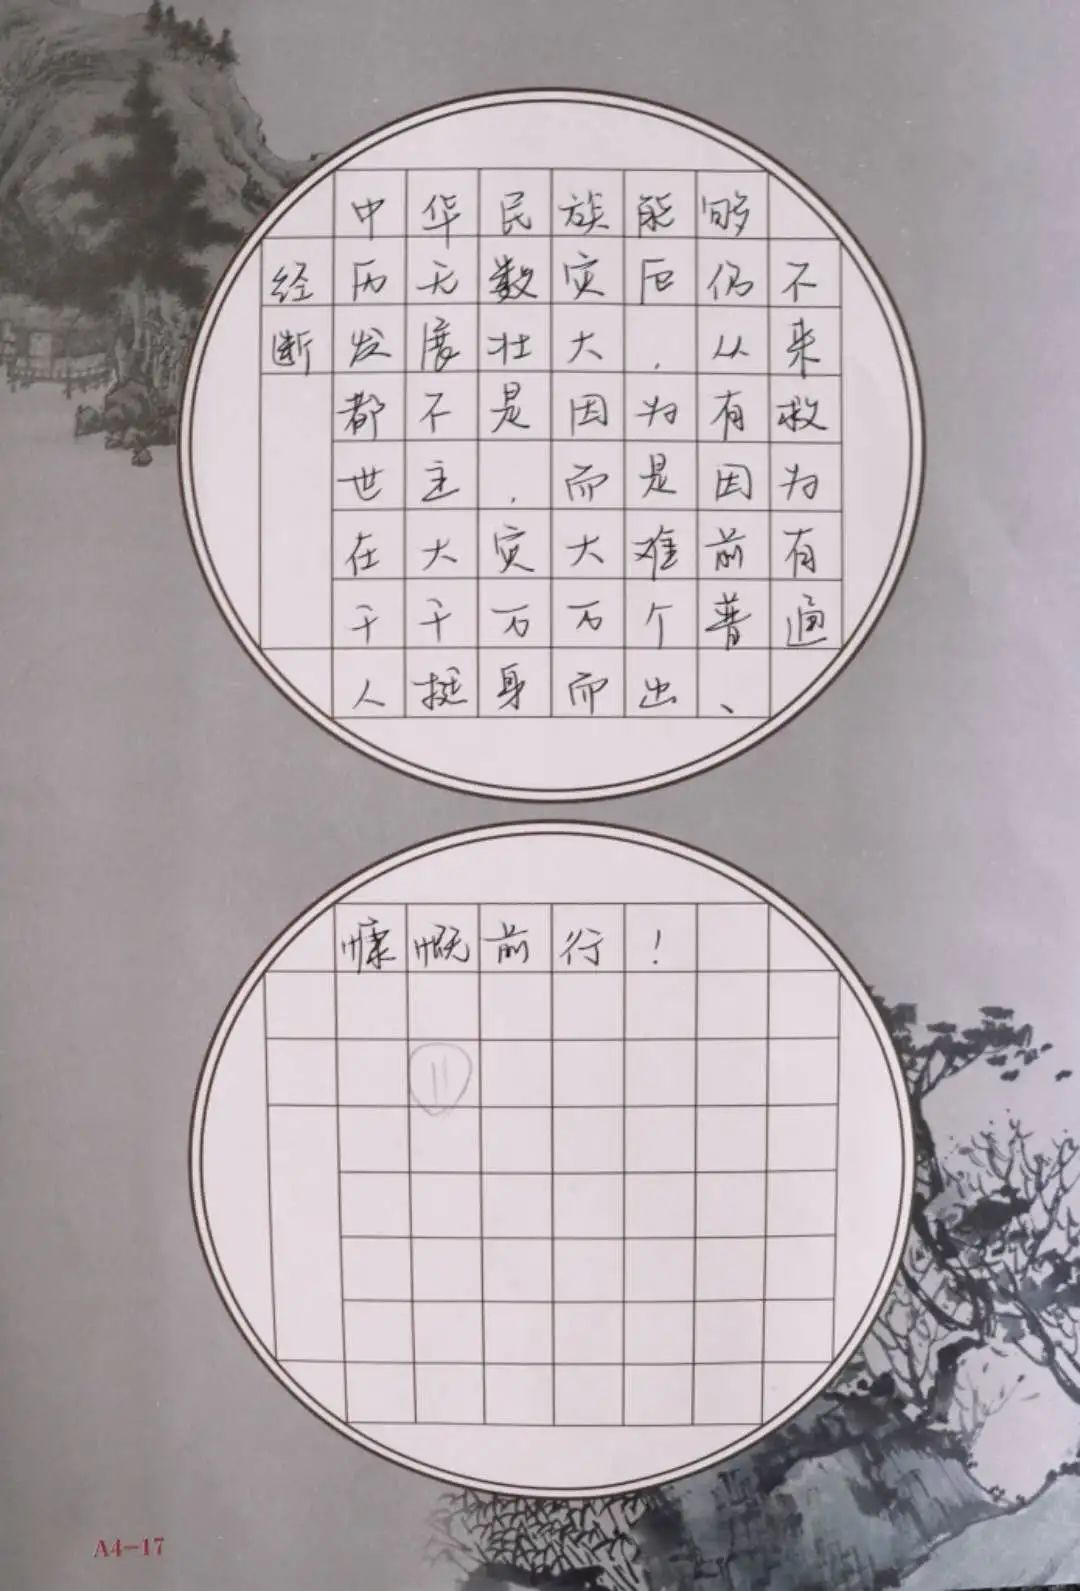 中华民族能够
经历无数灾厄仍不
断发展壮大，从来
都不是因为有救
世主，而是因为
在大灾大难前有
千千万万个普通
人挺身而出、
慷慨前行！
11
A4-17